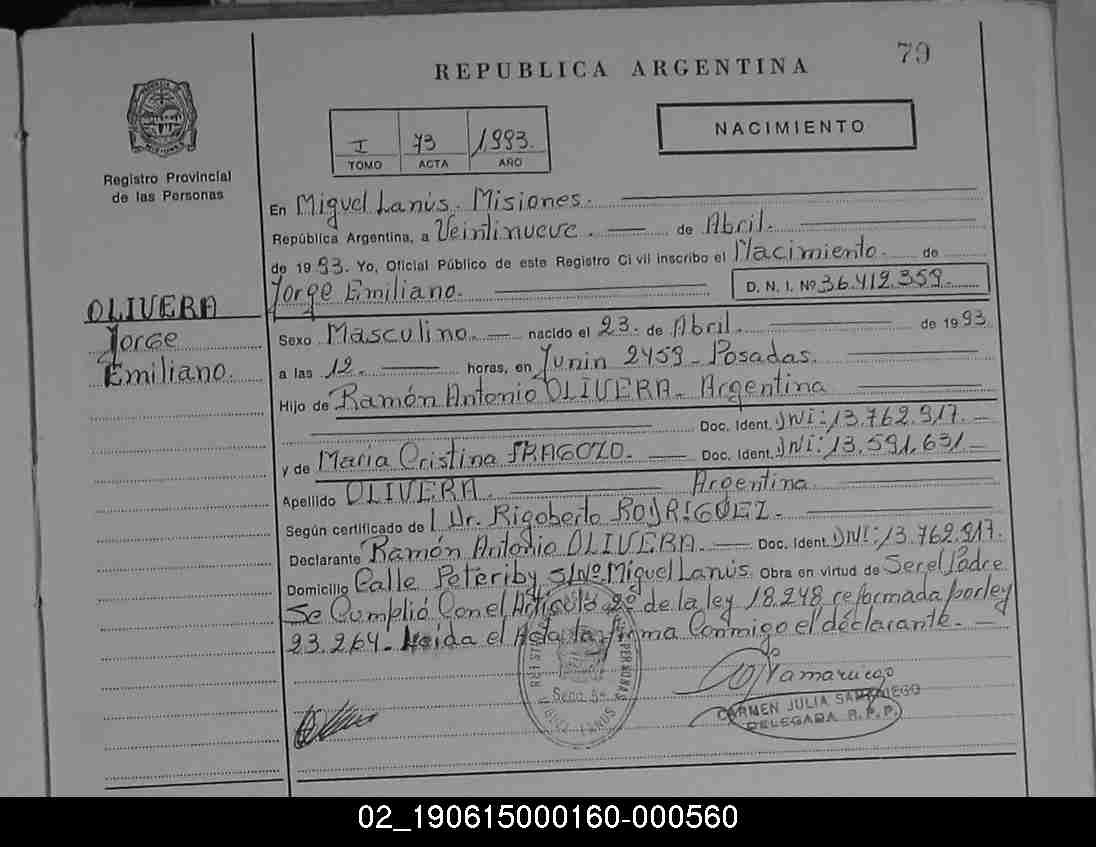 79
REPUBLICA ARGENTINA
I 73 1993.
TOMO ACTA AÑO
NACIMIENTO
Registro Provincial
de las Personas
En Miguel Lanús. Misiones.
República Argentina, a Veintinueve. de Abril.
de 1993. Yo, Oficial Público de este Registro Civil inscribo el Nacimiento. de
Jorge Emiliano. D. N. I. Nº 36.412.359.
OLIVERA
Jorge
Emiliano.
Sexo Masculino. nacido el 23. de Abril. de 1993.
a las 12. horas, en Junin 2459 - Posadas.
Hijo de Ramón Antonio OLIVERA - Argentina
Doc. Ident. DNI: 13.762.917.
y de María Cristina FRAGOZO. Doc. Ident. DNI: 13.591.631
Apellido OLIVERA. Argentina.
Según certificado de Dr. Rigoberto RODRIGUEZ.
Declarante Ramón Antonio OLIVERA. Doc. Ident. DNI: 13.762.917.
Domicilio Calle Peteriby S/Nº. Miguel Lanús. Obra en virtud de Ser el Padre
Se Cumplió Con el Artículo 2º de la ley 18.248 reformada por ley
23.264. Leida el Acta la firma Conmigo el declarante.
PERSONAS
CARMEN JULIA SAMANIEGO
DELEGADA R. P. P.
02_190615000160-000560